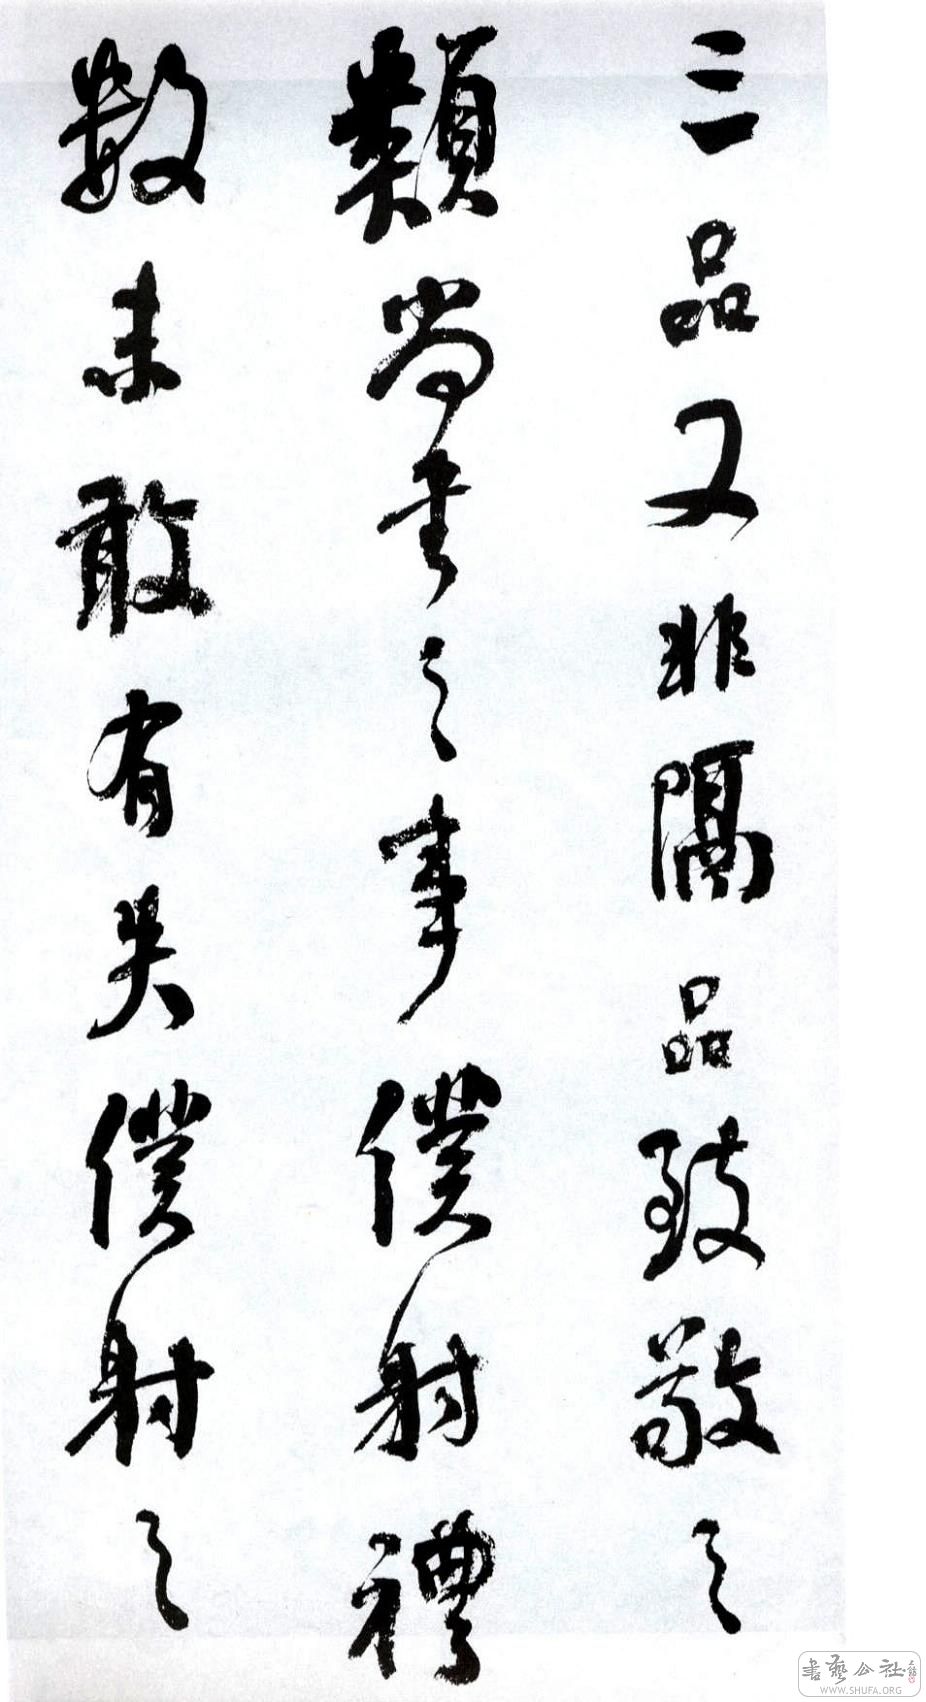 三品又非隔品致敬之
類尚書之事僕射禮
數未敢有失僕射之
書藝公社
WWW.SHUFA.ORG